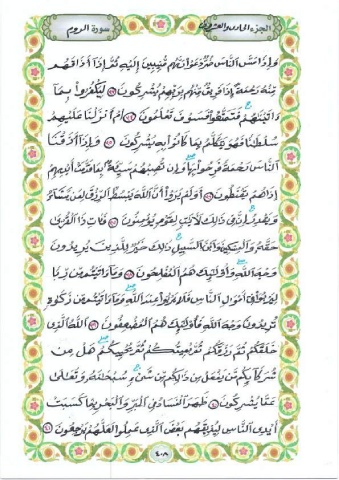 الجزء الحادى والعشرون
سورة الروم
وَإِذَا مَسَّ النَّاسَ ضُرٌّ دَعَوْا رَبَّهُم مُّنِيبِينَ إِلَيْهِ ثُمَّ إِذَا أَذَاقَهُم
مِّنْهُ رَحْمَةً إِذَا فَرِيقٌ مِّنْهُم بِرَبِّهِمْ يُشْرِكُونَ ٣٣ لِيَكْفُرُوا بِمَا
ءَاتَيْنَاهُمْ فَتَمَتَّعُوا فَسَوْفَ تَعْلَمُونَ ٣٤ أَمْ أَنزَلْنَا عَلَيْهِمْ
سُلْطَانًا فَهُوَ يَتَكَلَّمُ بِمَا كَانُوا بِهِ يُشْرِكُونَ ٣٥ وَإِذَا أَذَقْنَا
النَّاسَ رَحْمَةً فَرِحُوا بِهَا وَإِن تُصِبْهُمْ سَيِّئَةٌ بِمَا قَدَّمَتْ أَيْدِيهِمْ
إِذَا هُمْ يَقْنَطُونَ ٣٦ أَوَلَمْ يَرَوْا أَنَّ اللَّهَ يَبْسُطُ الرِّزْقَ لِمَن يَشَاءُ
وَيَقْدِرُ إِنَّ فِي ذَلِكَ لَآيَاتٍ لِّقَوْمٍ يُؤْمِنُونَ ٣٧ فَآتِ ذَا الْقُرْبَى
حَقَّهُ وَالْمِسْكِينَ وَابْنَ السَّبِيلِ ذَلِكَ خَيْرٌ لِّلَّذِينَ يُرِيدُونَ
وَجْهَ اللَّهِ وَأُولَئِكَ هُمُ الْمُفْلِحُونَ ٣٨ وَمَا ءَاتَيْتُم مِّن رِّبًا
لِّيَرْبُوَا فِي أَمْوَالِ النَّاسِ فَلَا يَرْبُوا عِندَ اللَّهِ وَمَا ءَاتَيْتُم مِّن زَكَوٰةٍ
تُرِيدُونَ وَجْهَ اللَّهِ فَأُولَئِكَ هُمُ الْمُضْعِفُونَ ٣٩ اللَّهُ الَّذِي
خَلَقَكُمْ ثُمَّ رَزَقَكُمْ ثُمَّ يُمِيتُكُمْ ثُمَّ يُحْيِيكُمْ هَلْ مِن
شُرَكَائِكُم مَّن يَفْعَلُ مِن ذَلِكُم مِّن شَيْءٍ سُبْحَانَهُ وَتَعَالَى
عَمَّا يُشْرِكُونَ ٤٠ ظَهَرَ الْفَسَادُ فِي الْبَرِّ وَالْبَحْرِ بِمَا كَسَبَتْ
أَيْدِي النَّاسِ لِيُذِيقَهُم بَعْضَ الَّذِي عَمِلُوا لَعَلَّهُمْ يَرْجِعُونَ ٤١
٤٠٨